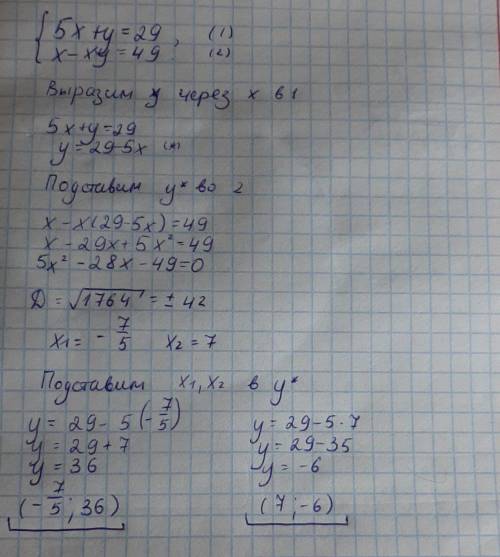 { 5x+y=29, (1)
x-xy=49. (2)
Выразим y через x в 1
5x+y=29
y=29-5x (*)
Подставим y* во 2
x-x(29-5x)=49
x-29x+5x²=49
5x²-28x-49=0
D=√1764=±42
x₁=-7/5 x₂=7
Подставим x₁,x₂ в y*
y=29-5(-7/5) y=29-5·7
y=29+7 y=29-35
y=36 y=-6
(-7/5;36) (7;-6)